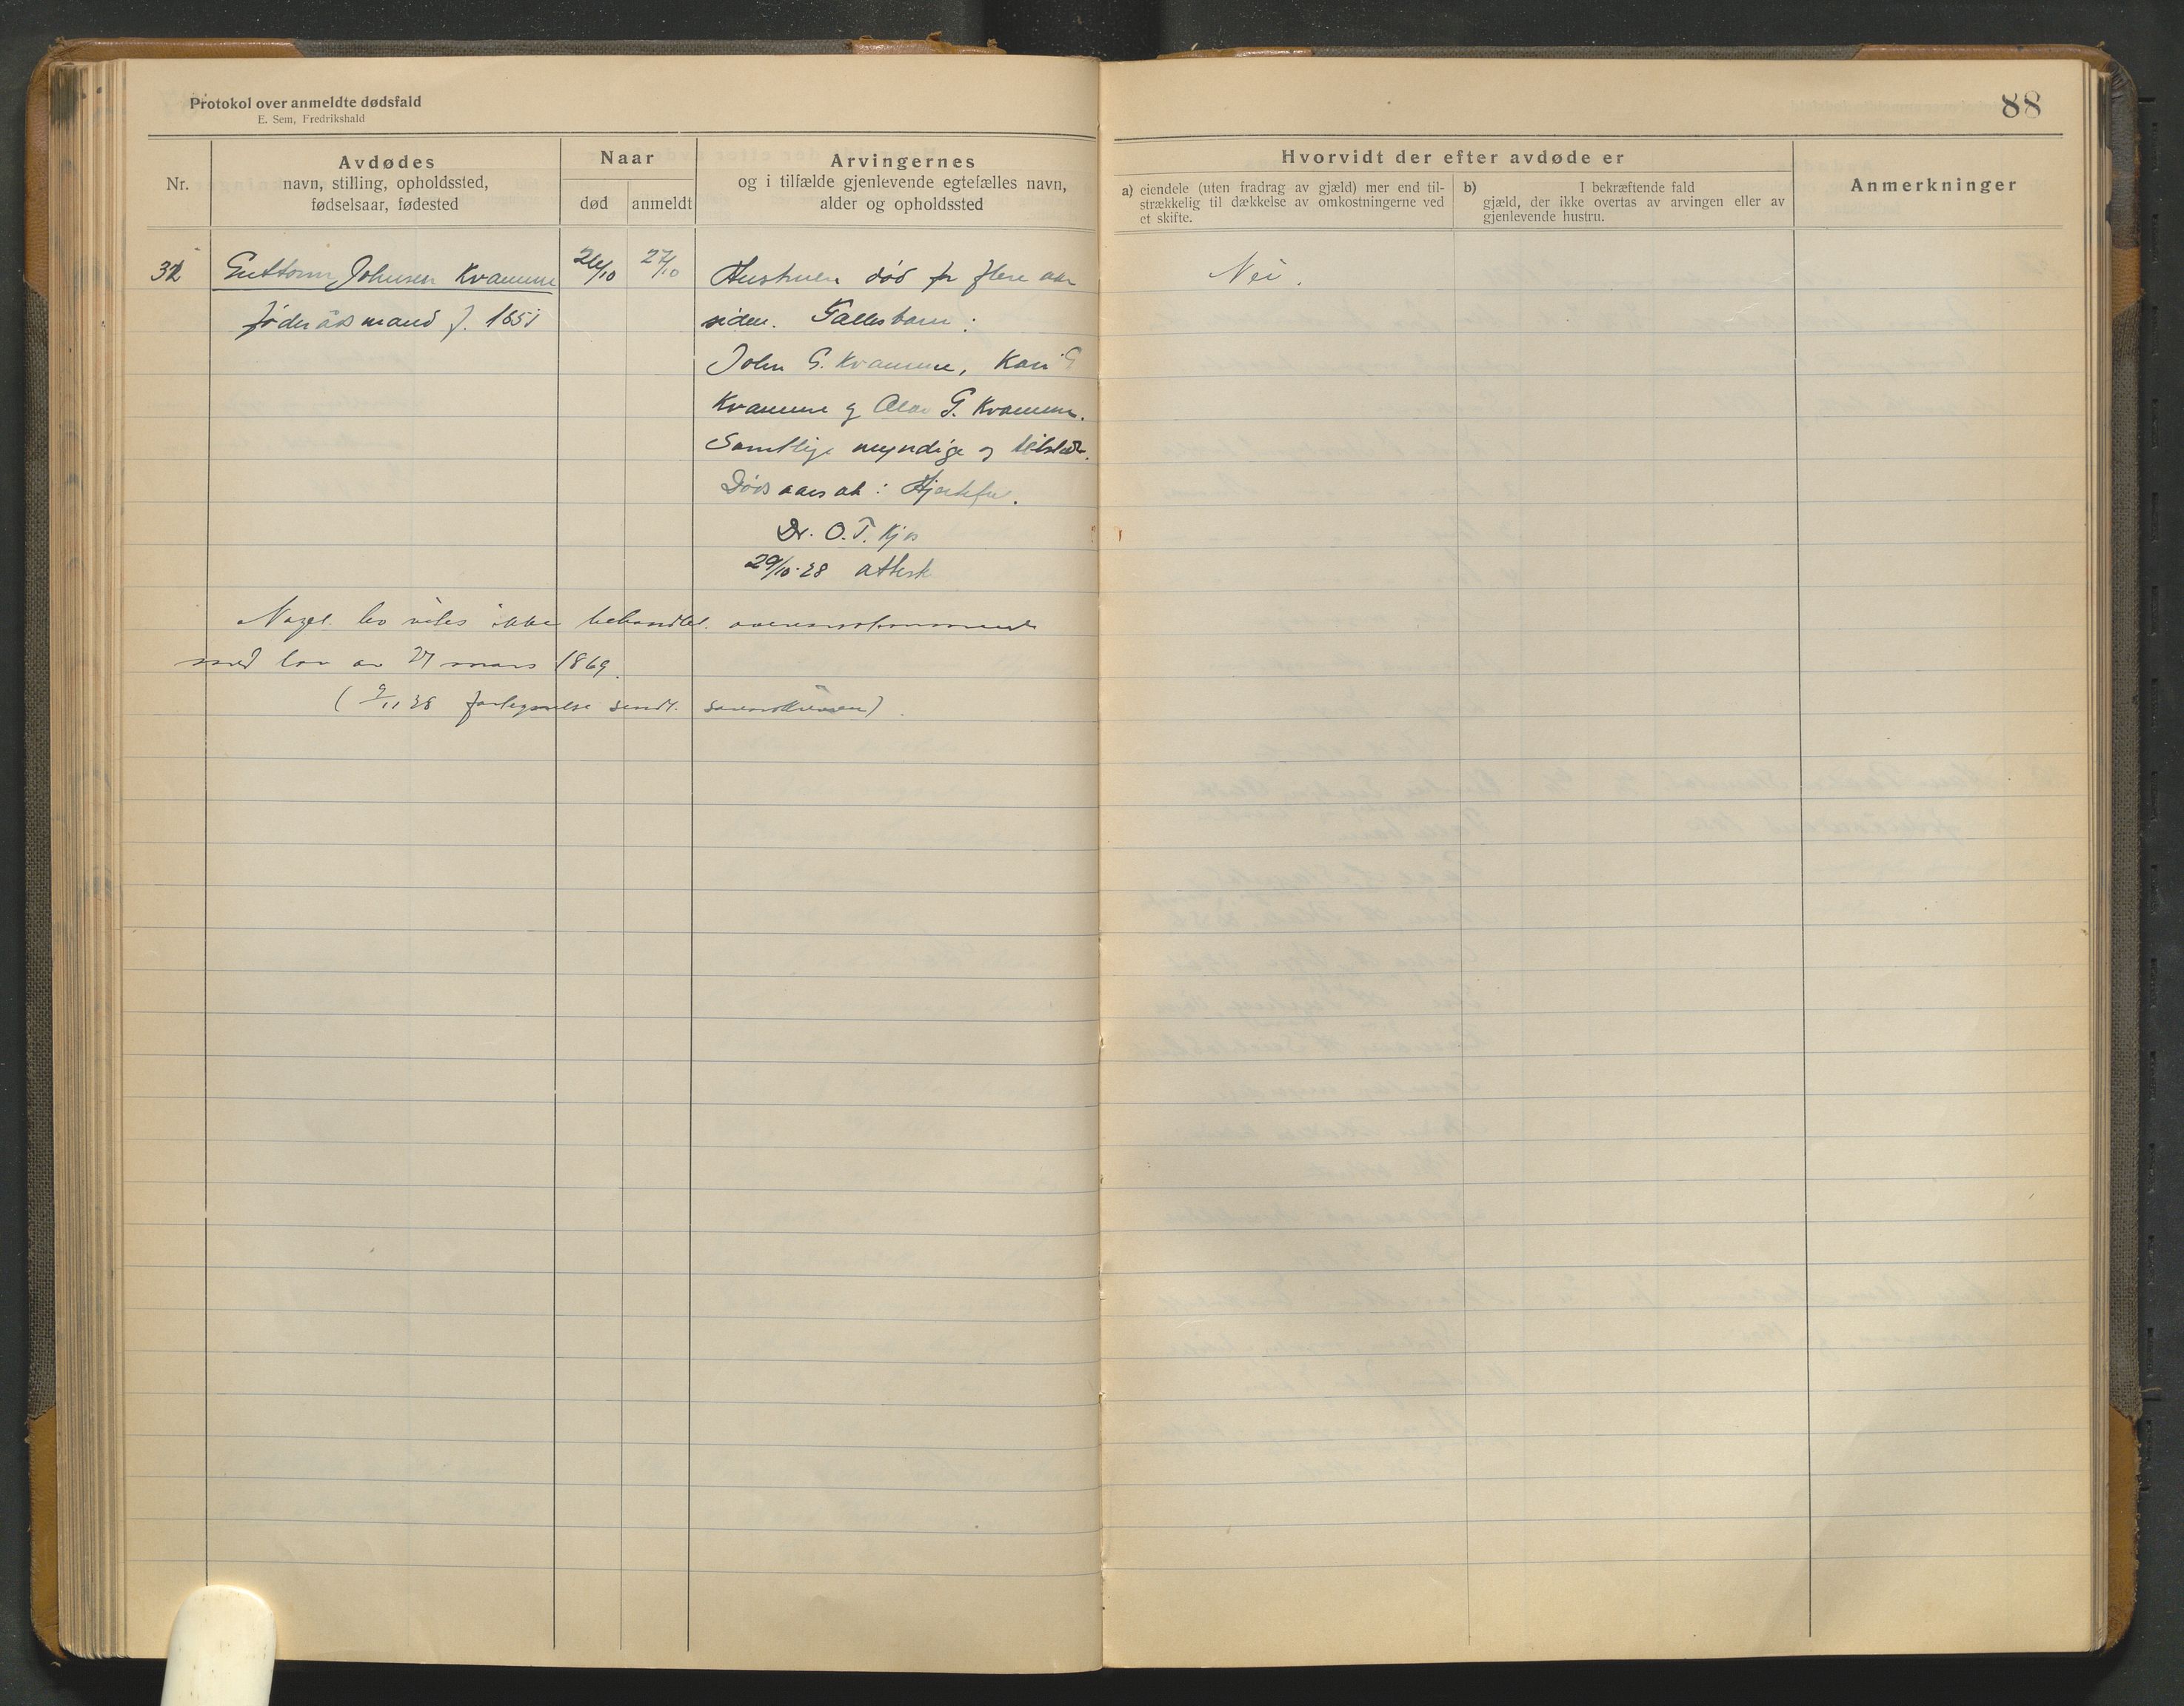 Protokol over anmeldte dødsfald
E. Sem, Fredrikshald
88
Nr.
Avdødes
navn, stilling, opholdssted,
fødselsaar, fødested
Naar
død
anmeldt
Arvingernes
og i tilfælde gjenlevende egtefælles navn,
alder og opholdssted
Hvorvidt der efter avdøde er
a) eiendele (uten fradrag av gjæld) mer end til-
strækkelig til dækkelse av omkostningerne ved
et skifte.
b) I bekræftende fald
gjæld, der ikke overtas av arvingen eller av
gjenlevende hustru.
Anmerkninger
32
Guttorm Johnsen Kvamme
føderåds mand f. 1851
26/10
27/10
Hustruen død for flere aar
siden. Fælles barn:
John G. Kvamme, Kari G
Kvamme og Olav G. Kvamme.
Samtlige myndige og tilstede.
Dødsaarsak: Hjertefeil.
Dr. O. T. Kjos
29/10-28 attest
Nei.
ikke behandlet overensstemmende
med lov av 27 mars 1869.
( 9/11 28 sendt )